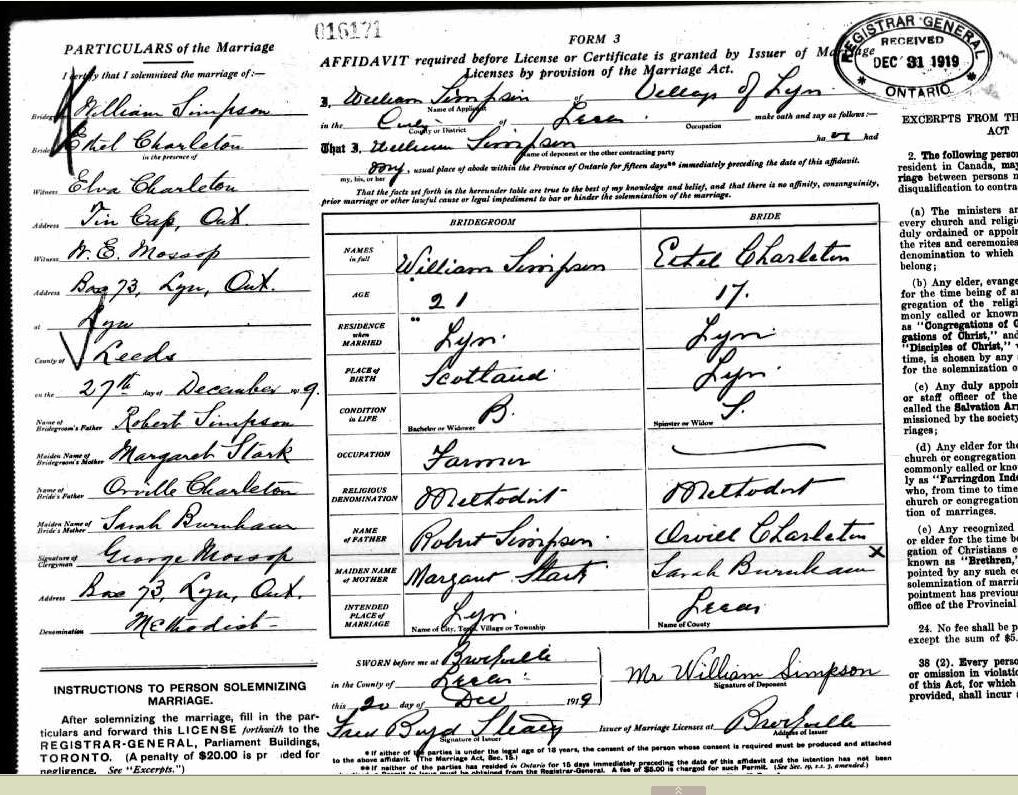 016171
PARTICULARS of the Marriage
I certify that I solemnised the marriage of:—
Bridegroom William Simpson
Bride Ethel Charleton
in the presence of
Witness Elva Charleton
Address Tin Cap, Ont
Witness W. E. Mossop
Address Box 73, Lyn, Ont.
at Lyn
County of Leeds
on the 27th day of December 1919.
Name of Bridegroom's Father Robert Simpson
Maiden Name of Bridegroom's Mother Margaret Stark
Name of Bride's Father Orville Charleton
Maiden Name of Bride's Mother Sarah Burnham
Signature of Clergyman George Mossop
Address Box 73, Lyn, Ont.
Denomination Methodist
INSTRUCTIONS TO PERSON SOLEMNIZING
MARRIAGE.
After solemnizing the marriage, fill in the par-
ticulars and forward this LICENSE forthwith to the
REGISTRAR-GENERAL, Parliament Buildings,
TORONTO. (A penalty of $20.00 is pr ided for
negligence. See "Excerpts.")
FORM 3
AFFIDAVIT required before License or Certificate is granted by Issuer of Marriage
Licenses by provision of the Marriage Act.
REGISTRAR GENERAL
RECEIVED
DEC 31 1919
ONTARIO
I, William Simpson of Village of Lyn
Name of Applicant
in the of Leeds make oath and say as follows:—
County or District Occupation
That I, William Simpson ha had
Name of deponent or the other contracting party
my, usual place of abode within the Province of Ontario for fifteen days** immediately preceding the date of this affidavit.
my, his, or her
That the facts set forth in the hereunder table are true to the best of my knowledge and belief, and that there is no affinity, consanguinity,
prior marriage or other lawful cause or legal impediment to bar or hinder the solemnization of the marriage.
BRIDEGROOM BRIDE
NAMES in full William Simpson Ethel Charleton
AGE 21 17.
RESIDENCE when MARRIED Lyn. Lyn
PLACE of BIRTH Scotland Lyn.
CONDITION in LIFE B. S.
Bachelor or Widower Spinster or Widow
OCCUPATION Farmer
RELIGIOUS DENOMINATION Methodist Methodist
NAME OF FATHER Robert Simpson. Orvill Charleton
MAIDEN NAME OF MOTHER Margaret Stark Sarah Burnham
INTENDED PLACE of MARRIAGE Lyn. Leeds
Name of City, Town, Village or Township Name of County
SWORN before me at Brockville
in the County of Leeds
this 20 day of Dec 1919
Mr William Simpson
Signature of Deponent
Fred Boyd Issuer of Marriage Licenses at Brockville
Signature of Issuer Address of Issuer
* If either of the parties is under the legal age of 18 years, the consent of the person whose consent is required must be produced and attached
to the above affidavit. (The Marriage Act, Sec. 15.)
** If neither of the parties has resided in Ontario for 15 days immediately preceding the date of this affidavit and the intention has not been
a Permit to issue must be obtained from the Registrar-General. A fee of $5.00 is charged for such Permit. (See Sec. 19, s.s. 7, amended.)
EXCERPTS FROM TH
ACT
2. The following person
resident in Canada, may
riage between persons n
disqualification to contra
(a) The ministers an
every church and religio
duly ordained or appoin
the rites and ceremonies
denomination to which
belong;
(b) Any elder, evange
for the time being of an
gregation of the religi
monly called or known
as "Congregations of G
gations of Christ," and
"Disciples of Christ," w
time, is chosen by any
for the solemnization o
(c) Any duly appoin
or staff officer of the
called the Salvation Arm
missioned by the society
riages;
(d) Any elder for the
church or congregation
commonly called or kno
ly as "Farringdon Inde
who, from time to time
church or congregation
tion of marriages.
(e) Any recognized
or elder for the time be
gation of Christians c
known as "Brethren,"
pointed by any such co
solemnization of marria
pointment has previous
office of the Provincial
24. No fee shall be p
except the sum of $5.
38 (2). Every perso
or omission in violatio
of this Act, for which
provided, shall incur